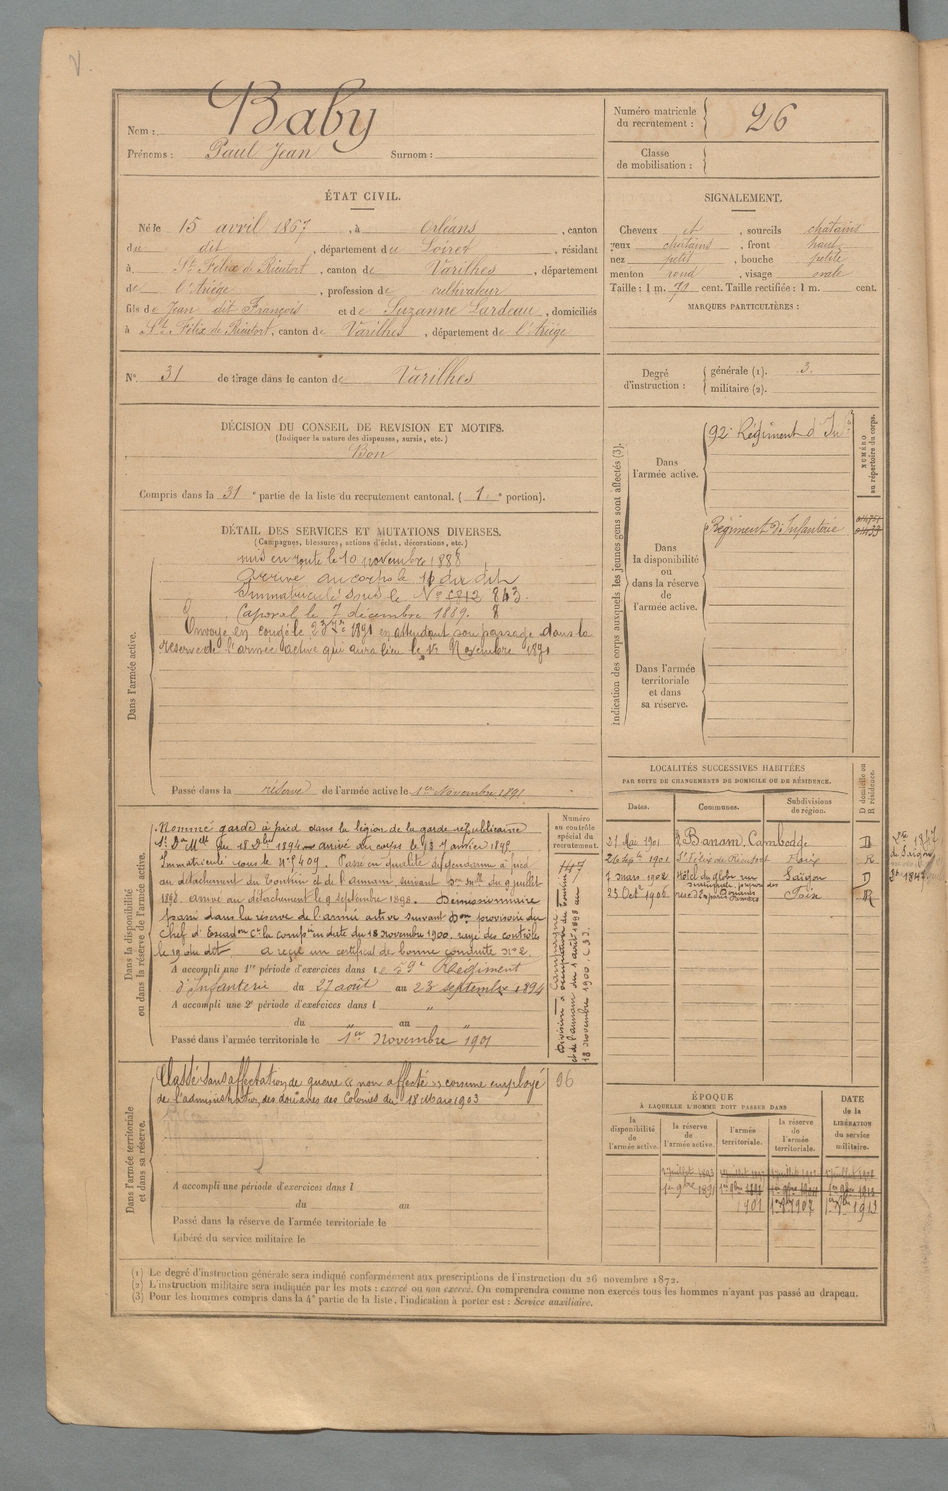 Nom : Baby
Prénoms : Paul Jean Surnom :
Numéro matricule du recrutement : 26
Classe de mobilisation :
ÉTAT CIVIL.
Né le 15 avril 1867, à Orléans, canton
du dit, département du Loiret, résidant
à St Félix de Rieutort, canton de Varilhes, département
de l'Ariège, profession de cultivateur
fils de Jean dit François et de Suzanne Lardeau, domiciliés
à St Félix de Rieutort, canton de Varilhes, département de l'Ariège
SIGNALEMENT.
Cheveux et, sourcils chatains
yeux chatains, front haut
nez petit, bouche petite
menton rond, visage ovale
Taille : 1 m. 71 cent. Taille rectifiée : 1 m. cent.
MARQUES PARTICULIÈRES :
N° 31 de tirage dans le canton de Varilhes
Degré d'instruction : générale (1). 3.
militaire (2).
DÉCISION DU CONSEIL DE REVISION ET MOTIFS.
(Indiquer la nature des dispenses, sursis, etc.)
Bon
Compris dans la 31e partie de la liste du recrutement cantonal. (1e portion).
DÉTAIL DES SERVICES ET MUTATIONS DIVERSES.
(Campagnes, blessures, actions d'éclat, décorations, etc.)
Dans l'armée active.
mis en route le 10 novembre 1888
Arrivé au corps le 11 du dit
Immatriculé sous le N° 843.
Caporal le 7 décembre 1889.
Envoyé en congé le 23 7bre 1891 en attendant son passage dans la
réserve de l'armée active qui aura lieu le 1r Novembre 1891
Passé dans la réserve de l'armée active le 1er Novembre 1891
Indication des corps auxquels les jeunes gens sont affectés (3).
Dans l'armée active.
92e Régiment d'Infie
NUMÉRO au répertoire du corps.
Dans la disponibilité ou dans la réserve de l'armée active.
Régiment d'Infanterie
Dans l'armée territoriale et dans sa réserve.
Dans la disponibilité ou dans la réserve de l'armée active.
Nommé garde à pied dans la légion de la garde républicaine
st Don Melle du 18 Dbre 1894 arrivé au corps le 13 Janvier 1895.
Immatriculé sous le n° 5409. Passé en qualité de gendarme à pied
au détachement du Tonkin et de l'annam suivant Don mlle du 9 juillet
1898, arrivé au détachement le 9 septembre 1898. Démissionnaire
passé dans la réserve de l'armée active suivant Don provisoire du
Chef d'Escadon Ct la compie en date du 18 novembre 1900. rayé des contrôles
le 19 du dit. a reçu un certificat de bonne conduite n° 2.
A accompli une 1re période d'exercices dans le 59e Régiment
d'Infanterie du 27 août au 23 septembre 1894
A accompli une 2e période d'exercices dans l "
du " au "
Passé dans l'armée territoriale le 1er Novembre 1901
Numéro au contrôle spécial du recrutement.
147
et de l'annam du 1 août 1898 au
18 novembre 1900.
LOCALITÉS SUCCESSIVES HABITÉES
PAR SUITE DE CHANGEMENTS DE DOMICILE OU DE RÉSIDENCE.
Dates. Communes. Subdivisions de région. D domicile ou R résidence.
21 Mai 1901 Banam, Cambodge D
26 sept 1901 St Félix de Rieutort Foix R
7 mars 1902 Hôtel du globe rue Saïgon D
23 Octe 1906 Foix R
Dans l'armée territoriale et dans sa réserve.
Classé sans affectation de guerre « non affecté » comme employé
de l'administration des douanes des Colonies du 18 Mars 1903
96
A accompli une période d'exercices dans l
du au
Passé dans la réserve de l'armée territoriale le
Libéré du service militaire le
ÉPOQUE
À LAQUELLE L'HOMME DOIT PASSER DANS
la disponibilité de l'armée active. la réserve de l'armée active. l'armée territoriale. la réserve de l'armée territoriale. DATE de la LIBÉRATION du service militaire.
1er 9bre 1891
1901 1er 9bre 1907 1er 9bre 1913
(1) Le degré d'instruction générale sera indiqué conformément aux prescriptions de l'instruction du 26 novembre 1872.
(2) L'instruction militaire sera indiquée par les mots : exercé ou non exercé. On comprendra comme non exercés tous les hommes n'ayant pas passé au drapeau.
(3) Pour les hommes compris dans la 4e partie de la liste, l'indication à porter est : Service auxiliaire.